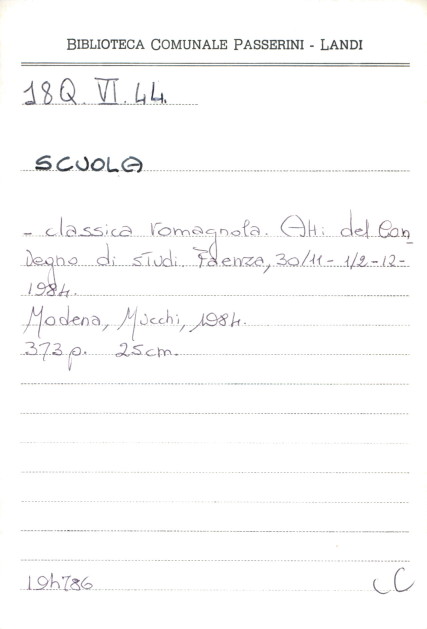 BIBLIOTECA COMUNALE PASSERINI - LANDI
18Q. VI. 44.
SCUOLA
- classica romagnola. Atti del Con
vegno di studi. Faenza, 30/11 - 1/2-12-
1984.
Modena, Mucchi, 1984.
373 p. 25 cm.
194786
CC